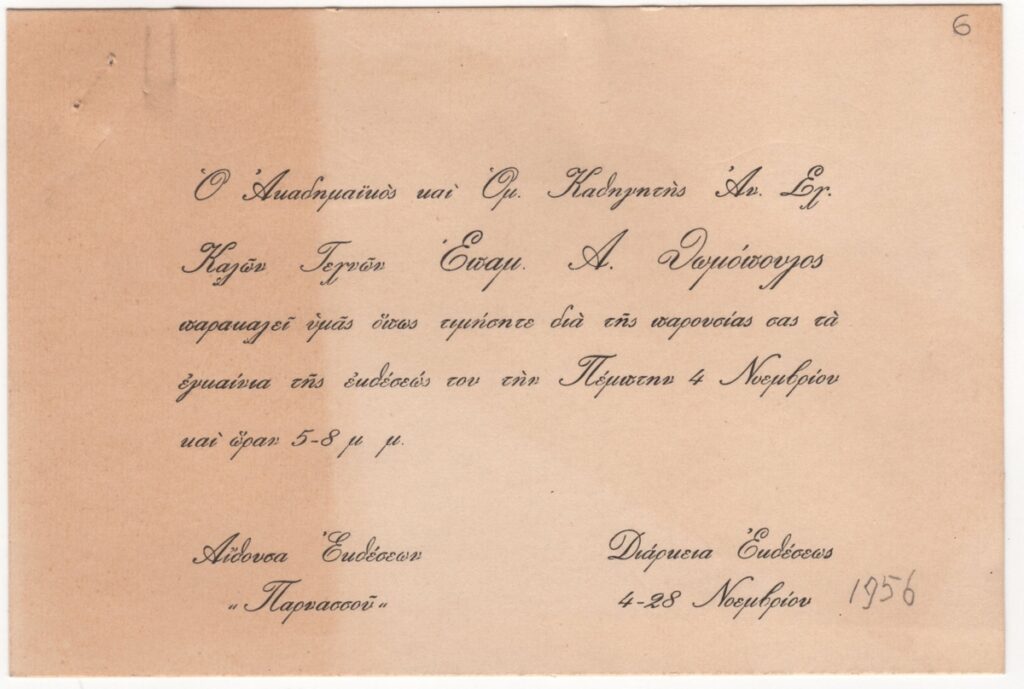 6
Ὁ Ἀκαδημαϊκὸς καὶ Ὁμ. Καθηγητὴς Ἀν. Σχ.
Καλῶν Τεχνῶν Ἐπαμ. Α. Θωμόπουλος
παρακαλεῖ ὑμᾶς ὅπως τιμήσητε διὰ τῆς παρουσίας σας τὰ
ἐγκαίνια τῆς ἐκθέσεώς του τὴν Πέμπτην 4 Νοεμβρίου
καὶ ὥραν 5-8 μ μ.
Αἴθουσα Ἐκθέσεων
„Παρνασσοῦ„
Διάρκεια Ἐκθέσεως
4-28 Νοεμβρίου 1956